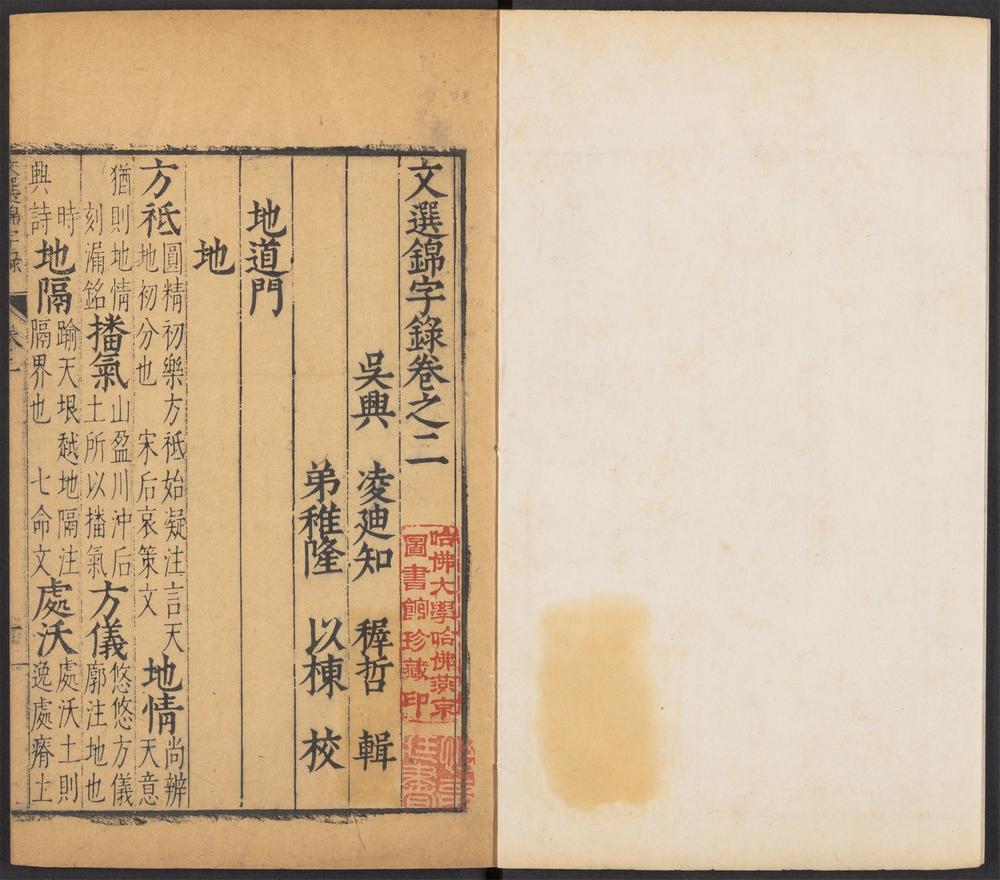 文選錦字錄卷之二
吳興　凌迪知　穉哲　輯
弟稚隆　以棟　校
地道門
地
方祇圓精初樂方祇始凝注言天地初分也　宋后哀策文地情尚辨天意
猶則地情刻漏銘播氣山盈川沖后土所以播氣方儀悠悠方儀廓注地也
時興詩地隔踰天垠越地隔注隔界也　七命文處沃處沃土則逸處瘠土
哈佛大學哈佛燕京
圖書館珍藏印